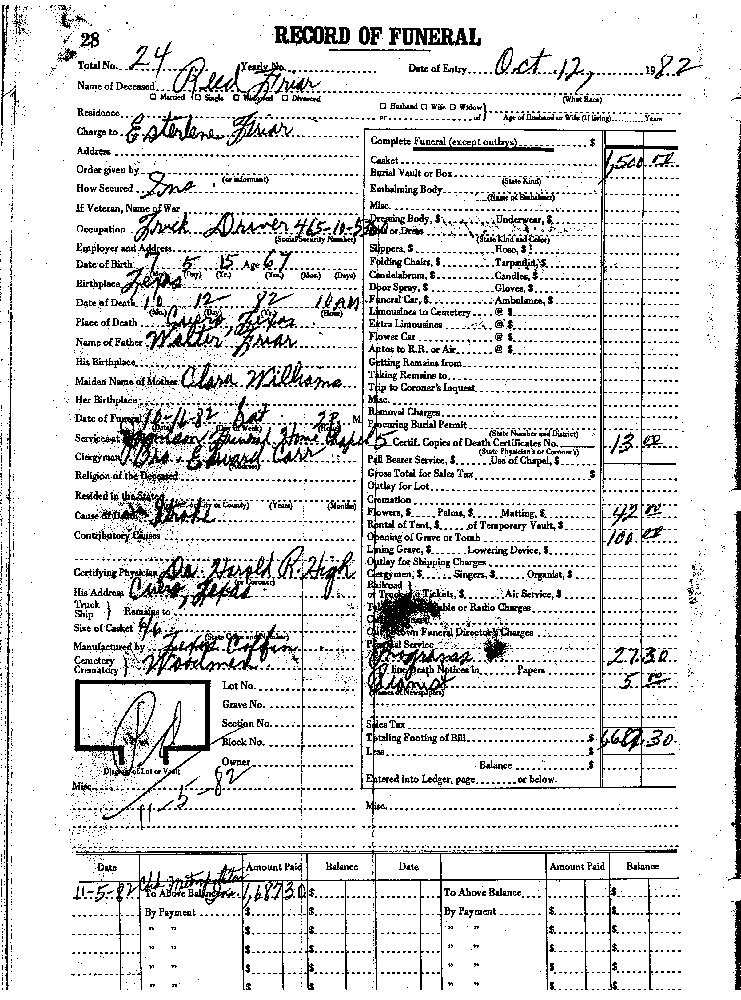 28
RECORD OF FUNERAL
Total No. 24 Yearly No. Date of Entry Oct. 12, 1982
Name of Deceased Reed Friar
☐ Married ☐ Single ☐ Widowed ☐ Divorced ☐ Husband ☐ Wife ☐ Widow (What Race)
Residence or of Age of Husband or Wife (if living) Years
Charge to Esterlene Friar
Address
Order given by (or informant)
How Secured Ins
If Veteran, Name of War
Occupation Truck Driver 465-10-
(Social Security Number)
Employer and Address
Date of Birth 7 5 15 Age 67
(Day) (Yr.) (Yrs.) (Mos.) (Days)
Birthplace Texas
Date of Death 10 12 82 10 AM
Place of Death Cuero, Texas
Name of Father Walter Friar
His Birthplace
Maiden Name of Mother Clara Williams
Her Birthplace
Date of Funeral 10-16-82 Sat 2 P. M.
Services at Funeral Home Chapel
Clergyman Bro. Edward Carr
Religion of the Deceased
Resided in the State
(City or County) (Years) (Months)
Cause of Death Stroke
Contributory Causes
Certifying Physician Dr. Harold R. High
His Address Cuero, Texas
Truck Ship } Remains to
Size of Casket 6/6
Manufactured by Texas Coffin
Cemetery Crematory } Woodmen
Lot No.
Grave No.
Section No.
Block No.
Owner
Diagram of Lot or Vault
Pd
11-5-82
Misc.
Complete Funeral (except outlays) $
Casket 1,500 00
Burial Vault or Box
(State Kind)
Embalming Body
(Name of Embalmer)
Misc.
Dressing Body, $ Underwear, $
Suit or Dress
(State Kind and Color)
Slippers, $ Hose, $
Folding Chairs, $ Tarpaulin, $
Candelabrum, $ Candles, $
Door Spray, $ Gloves, $
Funeral Car, $ Ambulance, $
Limousines to Cemetery @ $
Extra Limousines @ $
Flower Car @ $
Autos to R.R. or Air @ $
Getting Remains from
Taking Remains to
Trip to Coroner's Inquest
Misc.
Removal Charges
Procuring Burial Permit
(State Number and District)
5 Certif. Copies of Death Certificates No. 13 00
(State Physician's or Coroner's)
Pall Bearer Service, $ Use of Chapel, $
Gross Total for Sales Tax $
Outlay for Lot
Cremation
Flowers, $ Palms, $ Matting, $ 42 00
Rental of Tent, $ of Temporary Vault, $
Opening of Grave or Tomb 100 00
Lining Grave, $ Lowering Device, $
Outlay for Shipping Charges
Clergymen, $ Singers, $ Organist, $
Railroad
or Truck Tickets, $ Air Service, $
Cable or Radio Charges
Town Funeral Director's Charges
Personal Service
Programs 27.30
line Death Notices in Papers
Pianist 5 00
(Names of Newspapers)
Sales Tax
Totaling Footing of Bill $ 1,687.30
Less $
Balance $
Entered into Ledger, page or below.
Misc.
Date Amount Paid Balance Date Amount Paid Balance
11-5-82 To Above Balance 1,687 30 $ To Above Balance $ $
By Payment $ $ By Payment $ $
" " $ $ " " $ $
" " $ $ " " $ $
" " $ $ " " $ $
" " $ $ " " $ $